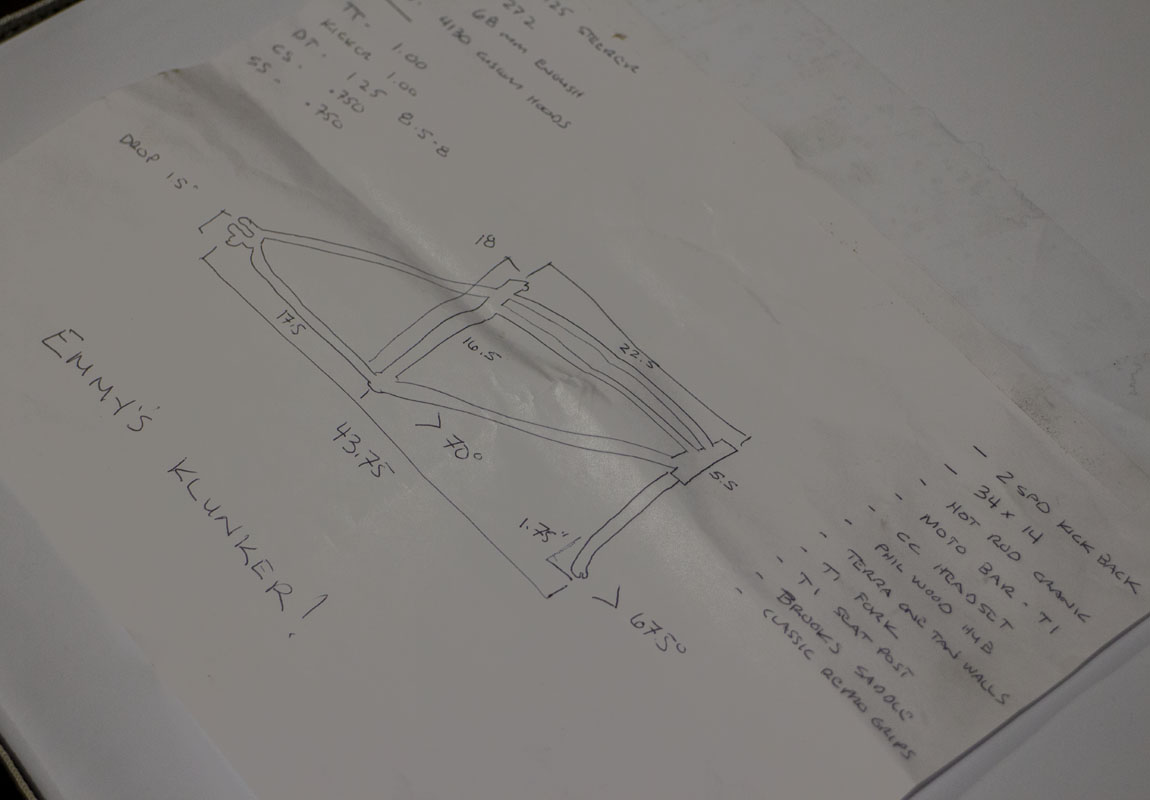 TT. 1.00
KICKER 1.00
DT. 125 8.5.8
CS. .750
SS. .750
272
68 mm ENGLISH
4130 CUSTOM HOODS
DROP 15.
18
22.5
17.5
16.5
> 70°
43.75
5.5
1.75"
> 675°
EMMY'S KLUNKER!
- 2 SPD KICK BACK
- 34 x 14
- HOT ROD CRANK
- MOTO BAR - TI
- CC HEADSET
- PHIL WOOD HUB
- TERRA ONE TAN WALLS
- TI FORK
- TI SEAT POST
- BROOKS SADDLE
- CLASSIC RETRO GRIPS